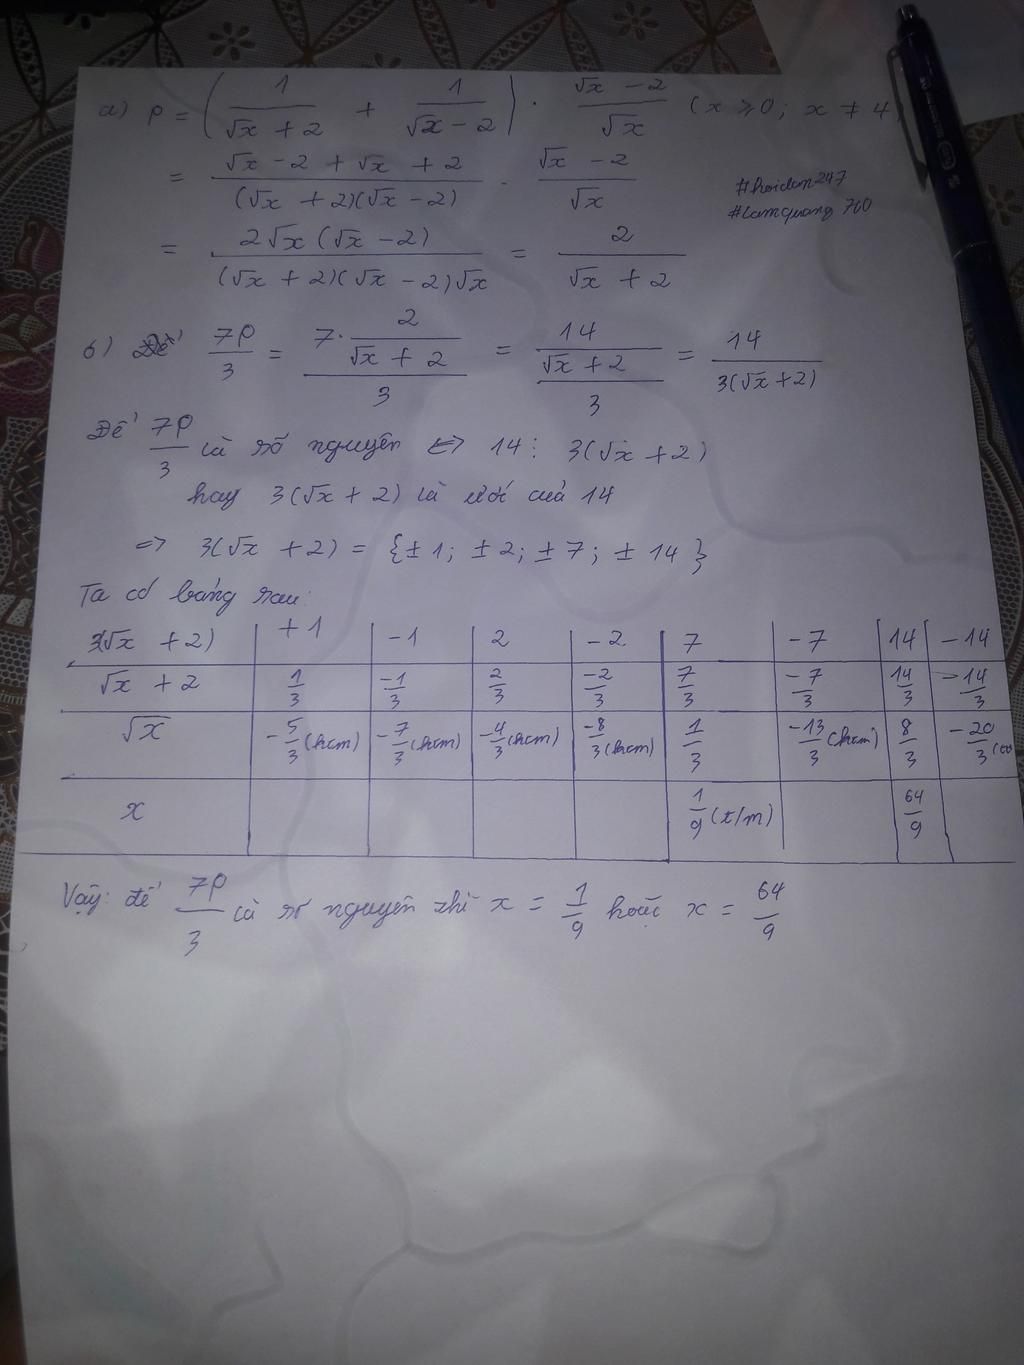 a) P = ( 1/(√x + 2) + 1/(√x - 2) ) · (√x - 2)/√x (x ≥ 0; x ≠ 4)
= (√x - 2 + √x + 2)/((√x + 2)(√x - 2)) · (√x - 2)/√x
#hoidan247
#lamquang760
= 2√x (√x - 2)/((√x + 2)(√x - 2)√x) = 2/(√x + 2)
b) 7P/3 = (7 · 2/(√x + 2))/3 = (14/(√x + 2))/3 = 14/(3(√x + 2))
Để 7P/3 là số nguyên <=> 14 ⋮ 3(√x + 2)
hay 3(√x + 2) là ước của 14
=> 3(√x + 2) = {±1; ±2; ±7; ±14}
Ta có bảng sau:
3(√x + 2) | +1 | -1 | 2 | -2 | 7 | -7 | 14 | -14
√x + 2 | 1/3 | -1/3 | 2/3 | -2/3 | 7/3 | -7/3 | 14/3 | -14/3
√x | -5/3 (ktm) | -7/3 (ktm) | -4/3 (ktm) | -8/3 (ktm) | 1/3 | -13/3 (ktm) | 8/3 | -20/3
x | 1/9 (t/m) | 64/9
Vậy: để 7P/3 là số nguyên thì x = 1/9 hoặc x = 64/9